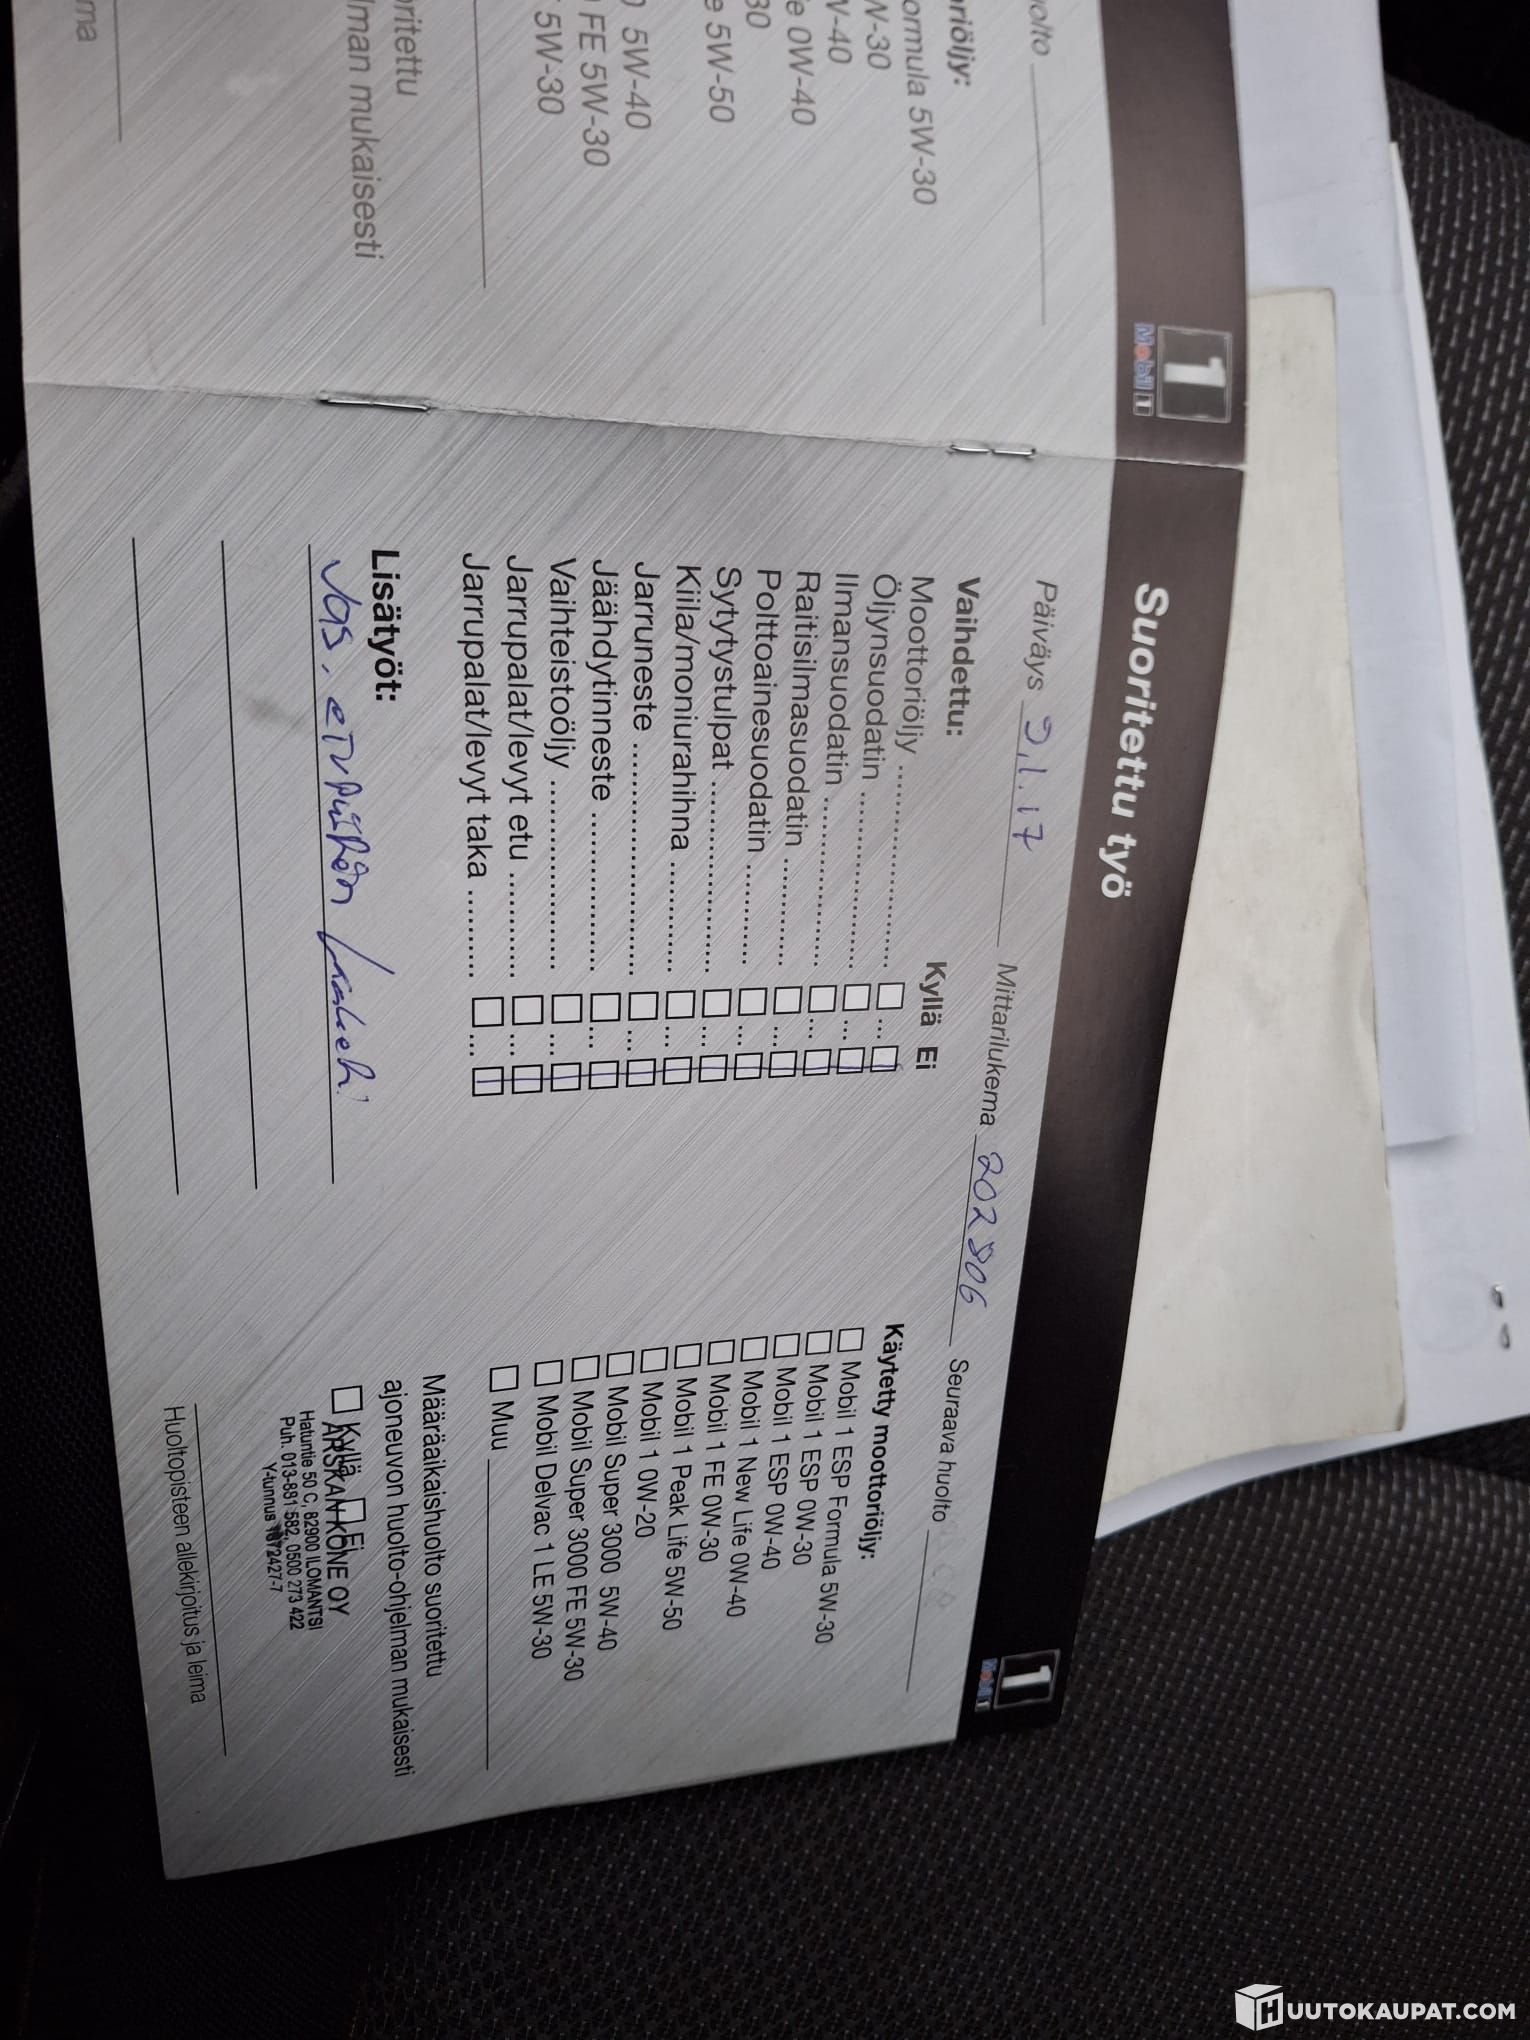 uolto
oriöljy:
ormula 5W-30
W-30
V-40
e 0W-40
30
e 5W-50
) 5W-40
FE 5W-30
5W-30
oritettu
lman mukaisesti
ma
1
Mobil 1
Suoritettu työ
1
Mobil 1
Päiväys 9.1.17 Mittarilukema 202806 Seuraava huolto
Vaihdettu: Kyllä Ei
Moottoriöljy
Öljynsuodatin
Ilmansuodatin
Raitisilmasuodatin
Polttoainesuodatin
Sytytystulpat
Kiila/moniurahihna
Jarruneste
Jäähdytinneste
Vaihteistoöljy
Jarrupalat/levyt etu
Jarrupalat/levyt taka
Käytetty moottoriöljy:
Mobil 1 ESP Formula 5W-30
Mobil 1 ESP 0W-30
Mobil 1 ESP 0W-40
Mobil 1 New Life 0W-40
Mobil 1 FE 0W-30
Mobil 1 Peak Life 5W-50
Mobil 1 0W-20
Mobil Super 3000 5W-40
Mobil Super 3000 FE 5W-30
Mobil Delvac 1 LE 5W-30
Muu
Lisätyöt:
Vas. etupyörän
Määräaikaishuolto suoritettu
ajoneuvon huolto-ohjelman mukaisesti
Kyllä Ei
ARSKAN KONE OY
Hatuntie 50 C, 82900 ILOMANTSI
Puh. 013-881 582, 0500 273 422
Y-tunnus 1872427-7
Huoltopisteen allekirjoitus ja leima
HUUTOKAUPAT.COM